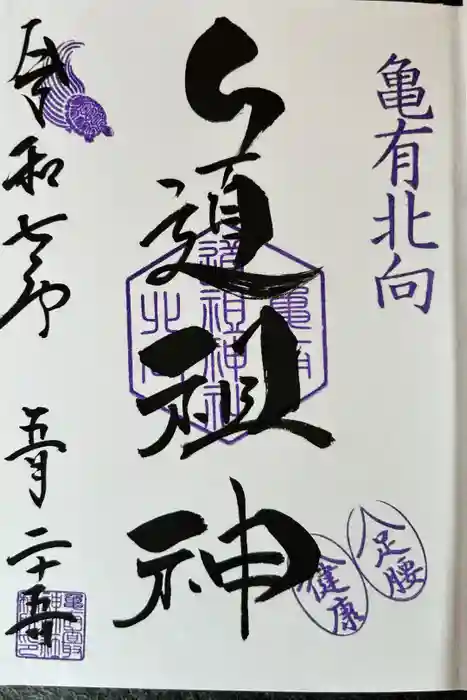 亀有北向
道祖神
亀有
道祖神社
北向
足腰
健康
令和七年 五月二十五